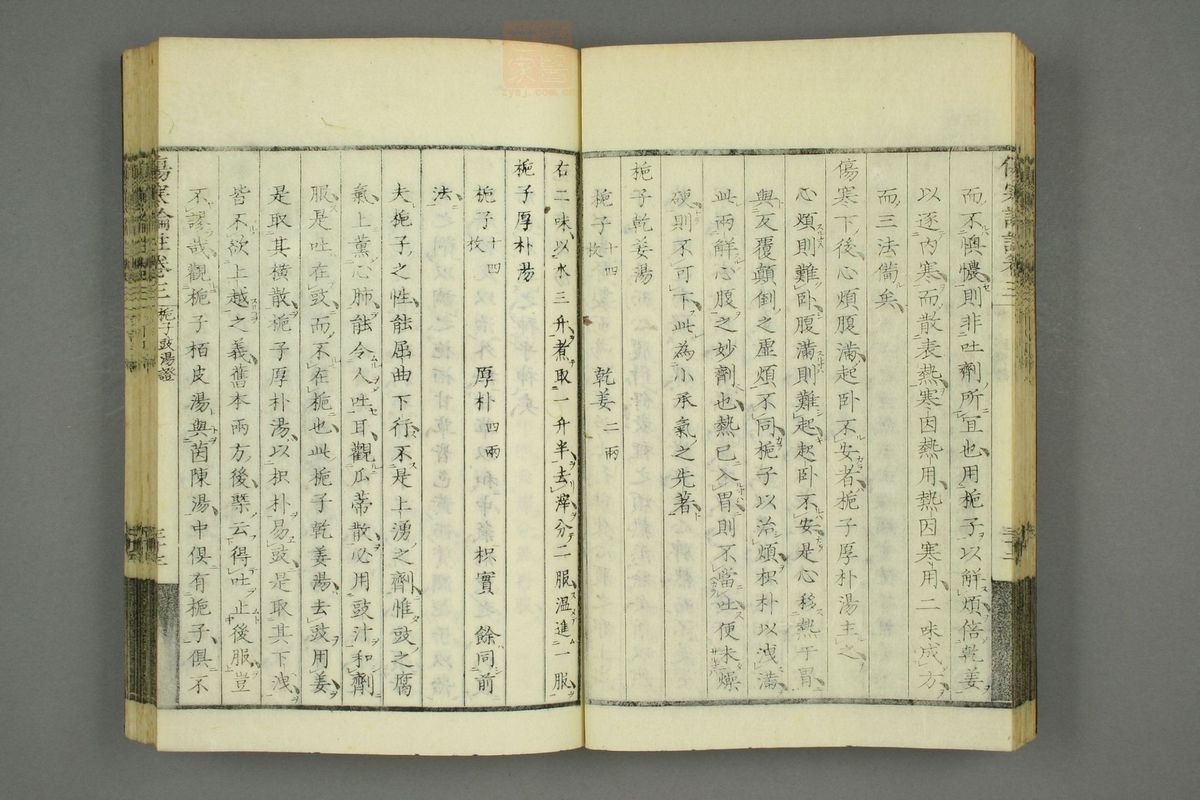 而不懊憹則非吐劑所宜也用梔子以解煩倍乾姜
以逐內寒而散表熱寒因熱用熱因寒用二味成方
而三法備矣
傷寒下後心煩腹滿起卧不安者梔子厚朴湯主之
心煩則難卧腹滿則難起起卧不安是心移熱于胃
與反覆顛倒之虛煩不同梔子以治煩枳朴以洩滿
此兩解心腹之妙劑也熱已入胃則不當吐便未燥
硬則不可下此為小承氣之先著
梔子乾姜湯
梔子十四枚 乾姜二兩
右二味以水三升煮取一升半去滓分二服溫進一服
梔子厚朴湯
梔子十四枚 厚朴四兩 枳實 餘同前
法
夫梔子之性能屈曲下行不是上湧之劑惟豉之腐
氣上薰心肺能令人吐耳觀瓜蒂散必用豉汁和劑
服是吐在豉而不在梔也此梔子乾姜湯去豉用姜
是取其橫散梔子厚朴湯以枳朴易豉是取其下洩
皆不欲上越之義舊本兩方後槩云得吐止後服豈
不謬哉觀梔子栢皮湯與茵陳湯中俱有梔子俱不
傷寒論註卷三
梔子豉湯證